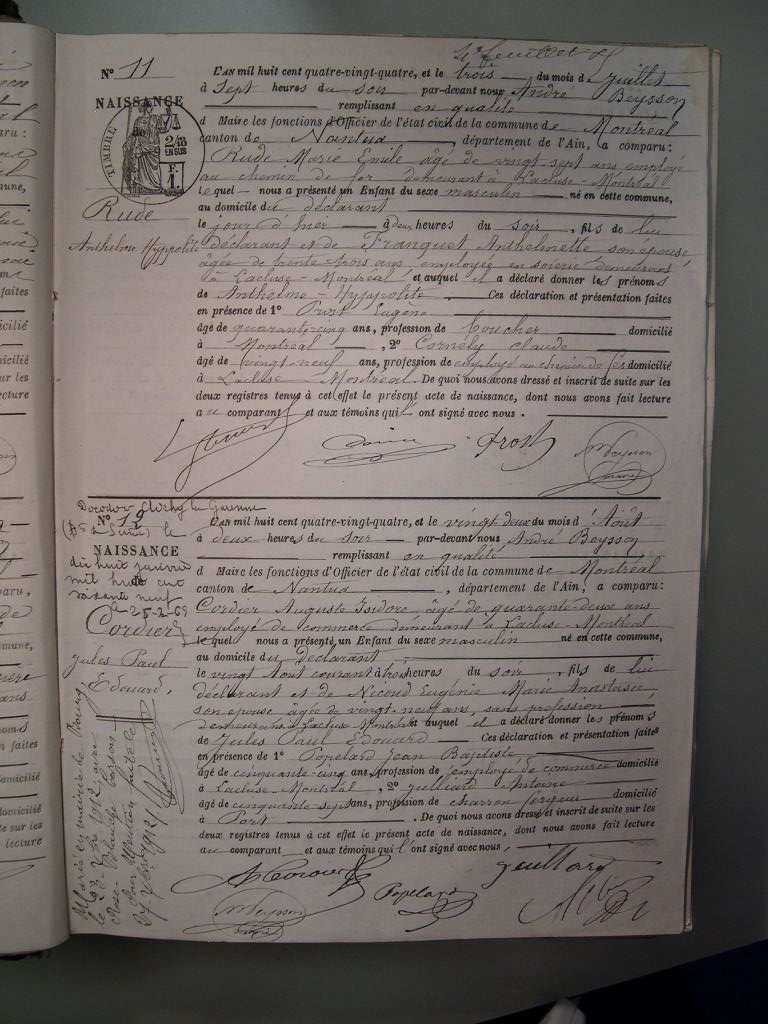 4e feuillet
N° 11
NAISSANCE
TIMBRE
2/10 EN SUS
F. 1
Rude
Anthelme Hyppolite
L'AN mil huit cent quatre-vingt-quatre, et le trois du mois de Juillet
à Sept heures du soir par-devant nous André Beysson
remplissant en qualité
d Maire les fonctions d'Officier de l'état civil de la commune de Montréal
canton de Nantua, département de l'Ain, a comparu:
Rude Marie Emile âgé de vingt-sept ans employé
au chemin de fer demeurant à Lacluse-Montréal
lequel nous a présenté un Enfant du sexe masculin né en cette commune,
au domicile du déclarant
le jour d'hier à deux heures du soir, fils de lui
déclarant et de Franquet Anthelmette son épouse
âgée de trente trois ans employée en soierie demeurant
à Lacluse-Montréal et auquel il a déclaré donner les prénoms
de Anthelme-Hyppolite. Ces déclaration et présentation faites
en présence de 1° Prost Eugène
âgé de quarante-cinq ans, profession de boucher domicilié
à Montréal, 2° Cornély Claude
âgé de vingt-neuf ans, profession de employé au chemin de fer domicilié
à Lacluse-Montréal. De quoi nous avons dressé et inscrit de suite sur les
deux registres tenus à cet effet le présent acte de naissance, dont nous avons fait lecture
au comparant et aux témoins qui l'ont signé avec nous.
Prost
Beysson
Décédé à Clichy la Garenne
N° 12
NAISSANCE
dix huit janvier
mil huit cent
soixante neuf
le 25-2-69
Cordier
Jules Paul
Edouard,
L'AN mil huit cent quatre-vingt-quatre, et le vingt deux du mois d'Août
à deux heures du soir par-devant nous André Beysson
remplissant en qualité
d Maire les fonctions d'Officier de l'état civil de la commune de Montréal
canton de Nantua, département de l'Ain, a comparu:
Cordier Auguste Isidore âgé de quarante-deux ans
employé de commerce demeurant à Lacluse-Montréal
lequel nous a présenté un Enfant du sexe masculin né en cette commune,
au domicile du déclarant
le vingt Aout courant à trois heures du soir, fils de lui
déclarant et de Nicoud Eugénie Marie Anastasie,
son épouse âgée de vingt-neuf ans, sans profession
demeurant à Lacluse Montréal et auquel il a déclaré donner les prénoms
de Jules Paul Edouard Ces déclaration et présentation faites
en présence de 1° Popelard Jean Baptiste
âgé de cinquante-cinq ans, profession de employé de commerce domicilié
à Lacluse-Montréal, 2° Juilliard Antoine
âgé de cinquante sept ans, profession de charron forgeur domicilié
à Port. De quoi nous avons dressé et inscrit de suite sur les
deux registres tenus à cet effet le présent acte de naissance, dont nous avons fait lecture
au comparant et aux témoins qui l'ont signé avec nous,
Popelard
Juillard
Beysson
Marié en mairie de Bourg,
le 23 1912 avec
Rose
27 1912